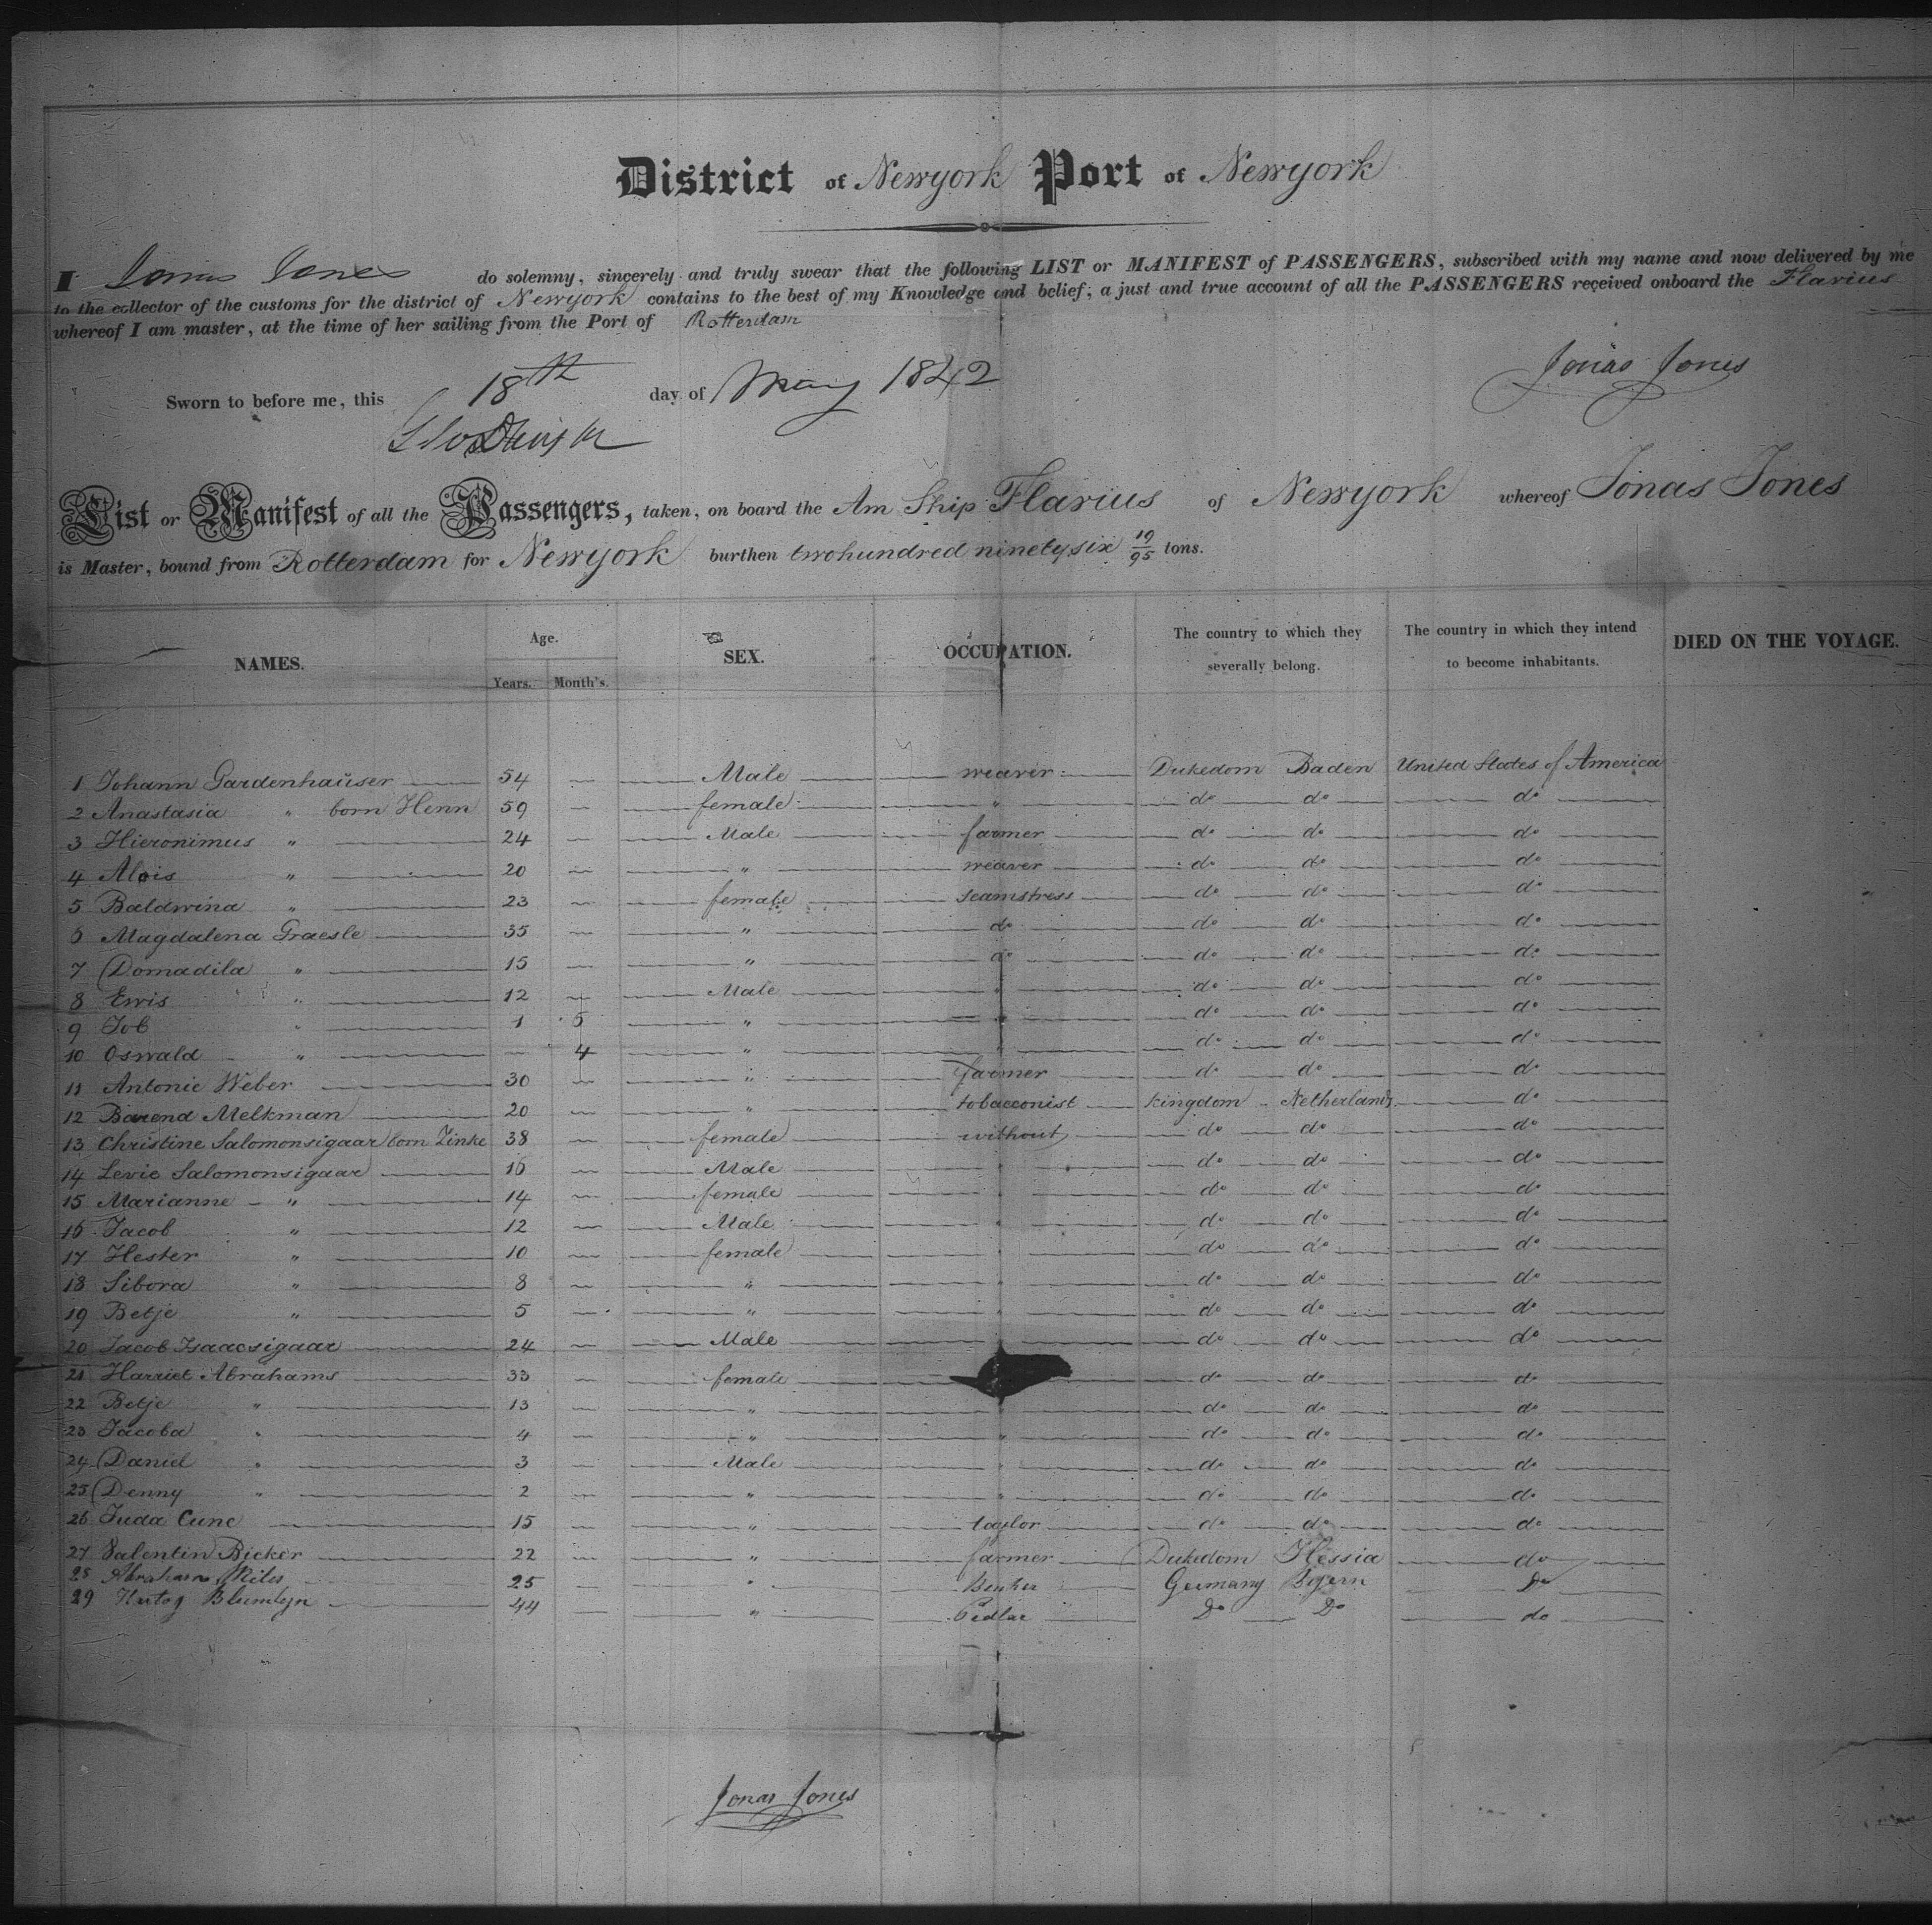 District of Newyork Port of Newyork
I Jonas Jones do solemny, sincerely and truly swear that the following LIST or MANIFEST of PASSENGERS, subscribed with my name and now delivered by me
to the collector of the customs for the district of Newyork contains to the best of my Knowledge and belief; a just and true account of all the PASSENGERS received onboard the Flavius
whereof I am master, at the time of her sailing from the Port of Rotterdam
Jonas Jones
Sworn to before me, this 18th day of May 1842
List or Manifest of all the Passengers, taken, on board the Am Ship Flavius of Newyork whereof Jonas Jones
is Master, bound from Rotterdam for Newyork burthen twohundred ninety six 19/95 tons.
NAMES. Age. Years. Month's. SEX. OCCUPATION. The country to which they severally belong. The country in which they intend to become inhabitants. DIED ON THE VOYAGE.
1 Johann Gardenhaüser 54 — Male weaver Dukedom Baden United States of America
2 Anastasia " born Henn 59 — female " do do do
3 Hieronimus " 24 — Male farmer do do do
4 Alois " 20 — " weaver do do do
5 Baldwina " 23 — female seamstress do do do
6 Magdalena Graesle 35 — " do do do do
7 Domadila " 15 — " do do do do
8 Erris " 12 — Male " do do do
9 Job " 1 5 " " do do do
10 Oswald " — 4 " " do do do
11 Antonie Weber 30 — " farmer do do do
12 Barend Melkman 20 — " tobacconist Kingdom Netherlands do
13 Christine Salomonsigaar born Zinke 38 — female without do do do
14 Levie Salomonsigaar 16 — Male " do do do
15 Marianne " 14 — female " do do do
16 Jacob " 12 — Male " do do do
17 Hester " 10 — female " do do do
18 Sibora " 8 — " " do do do
19 Betje " 5 — " " do do do
20 Jacob Isaacsigaar 24 — Male do do do
21 Harriet Abrahams 33 — female do do do
22 Betje " 13 — " " do do do
23 Jacoba " 4 — " " do do do
24 Daniel " 3 — Male " do do do
25 Denny " 2 — " " do do do
26 Juda Cune 15 — " taylor do do do
27 Valentin Bicker 22 — " farmer Dukedom Hessia do
28 Abraham 25 — " Germany Do
29 Hartog Blumlyn 44 — " Pedlar Do Do do
Jonas Jones